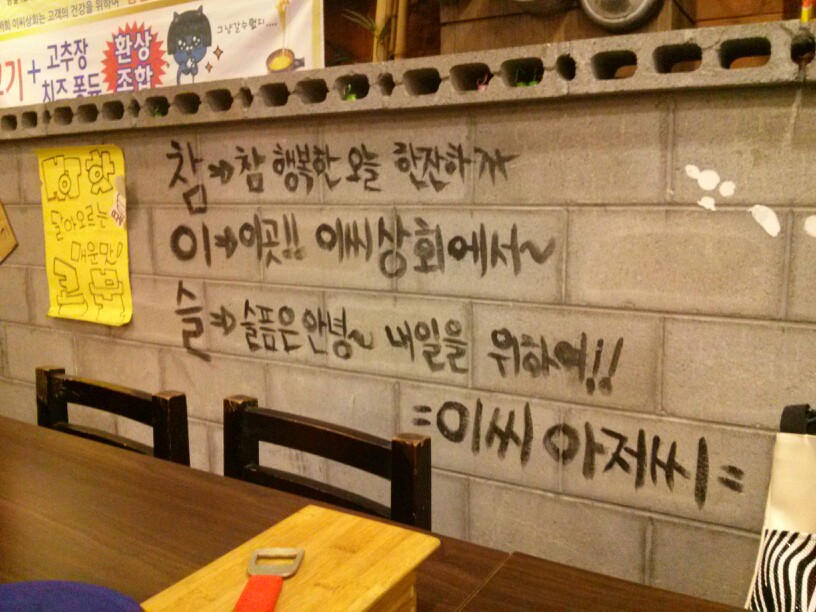 이씨상회는 고객의 건강을 위하여
기 + 고추장
치즈 퐁듀
환상
조합
그냥갈수없지....
핫
날아오르는
매운맛!
참 ⇒ 참 행복한 오늘 한잔하자
이 ⇒ 이곳!! 이씨상회에서~
슬 ⇒ 슬픔은 안녕~ 내일을 위하여!!
=이씨 아저씨=